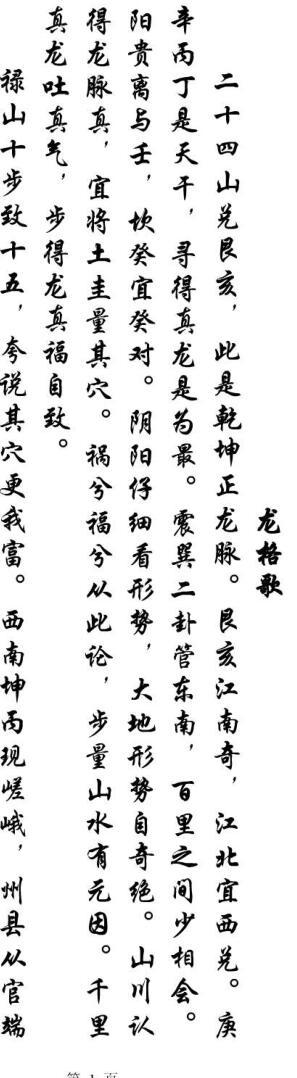 龙格歌
二十四山兑艮亥，此是乾坤正龙脉。艮亥江南奇，江北宜西兑。庚
辛丙丁是天干，寻得真龙是为最。震巽二卦管东南，百里之间少相会。
阳贵离与壬，坎癸宜癸对。阴阳仔细看形势，大地形势自奇绝。山川认
得龙脉真，宜将土圭量其穴。祸兮福兮从此论，步量山水有元因。千里
真龙吐真气，步得龙真福自致。
禄山十步致十五，夸说其穴更我富。西南坤丙现嵯峨，州县从官端
第 1 页